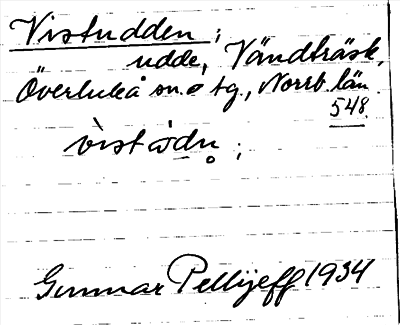 Vistudden;
udde, Vändträsk,
Överluleå sn. o tg., Norrb. län.
548.
Gunnar Pellijeff 1934